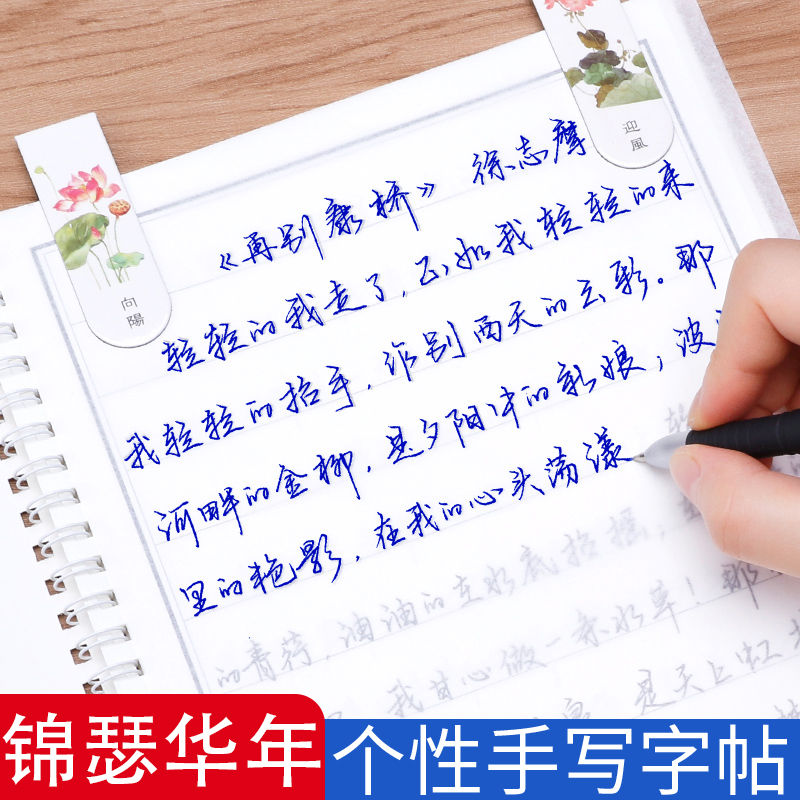 迎風
向陽
《再别康桥》 徐志摩
轻轻的我走了,正如我轻轻的来
我轻轻的招手,作别西天的云彩。那
河畔的金柳,是夕阳中的新娘;波
里的艳影,在我的心头荡漾
的青荇,油油的在水底招摇,
我甘心做一条水草!那
是天上虹
锦瑟华年
个性手写字帖